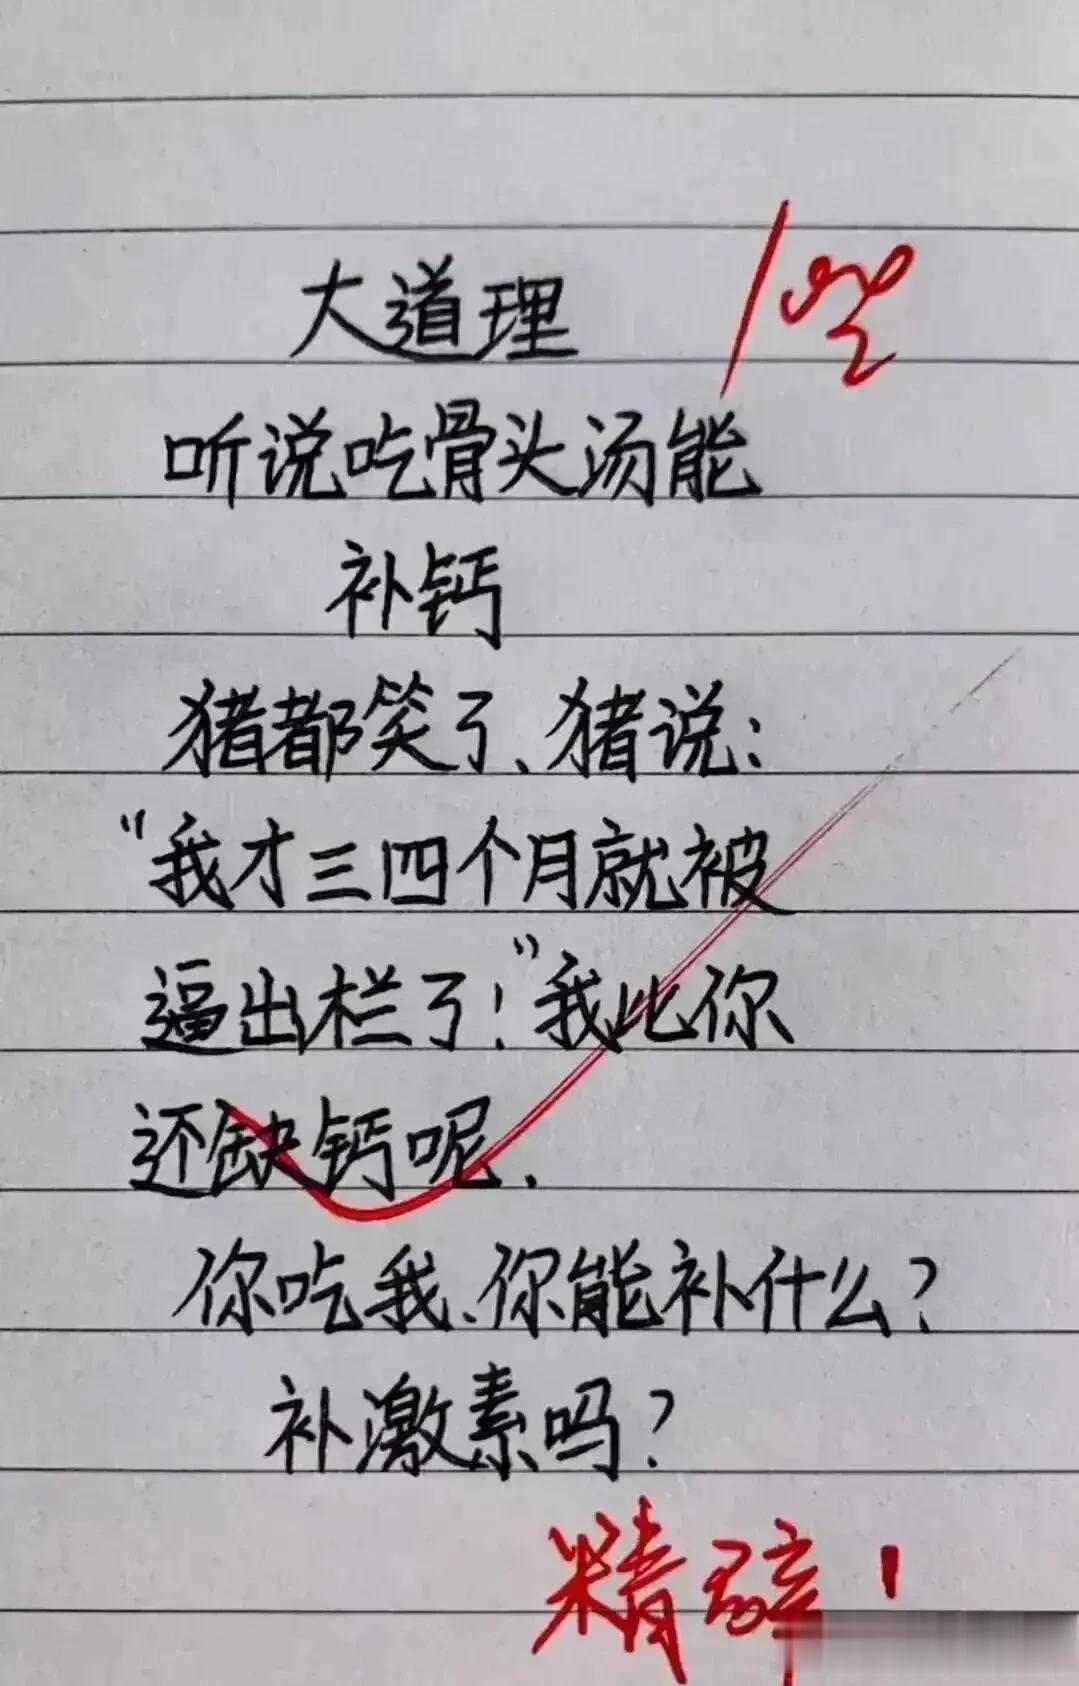 大道理
100
听说吃骨头汤能
补钙
猪都笑了、猪说:
“我才三四个月就被
逼出栏了!”我比你
还缺钙呢.
你吃我、你能补什么?
补激素吗?
精辟!